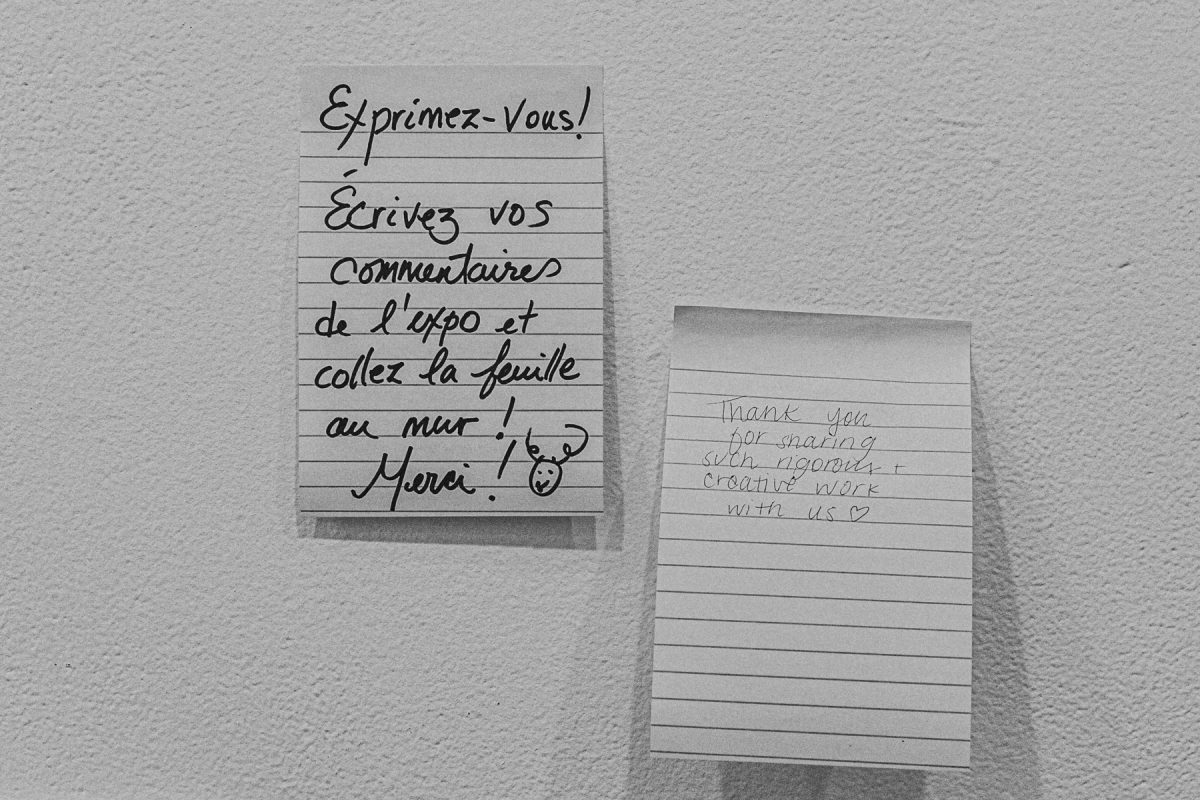 Exprimez-Vous!
Écrivez vos
commentaires
de l'expo et
collez la feuille
au mur !
Merci !
Thank you
for sharing
such rigorous +
creative work
with us ♡